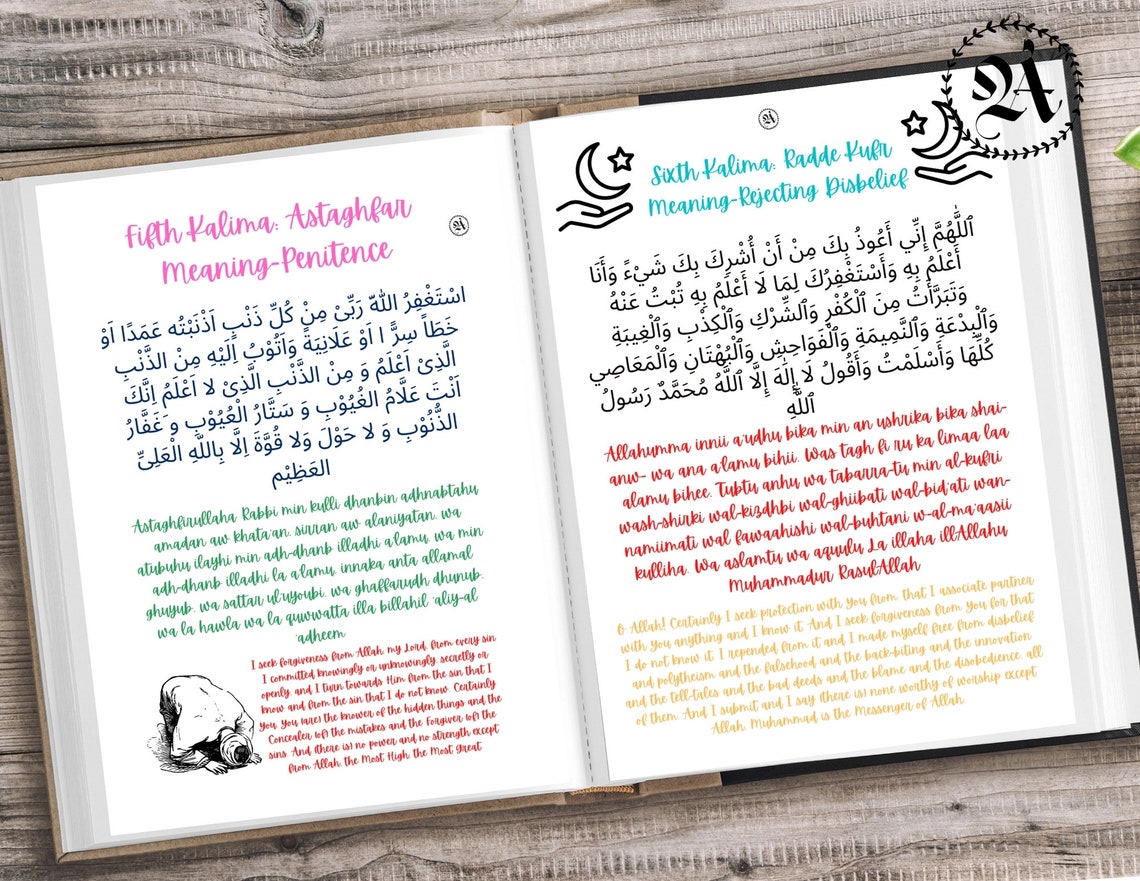 Fifth Kalima: Astaghfar
Meaning-Penitence
اسْتَغْفِرُ اللّٰهَ رَبِّىْ مِنْ كُلِّ ذَنْبٍ اَذْنَبْتُه عَمَدًا اَوْ
خَطَأً سِرًّا اَوْ عَلَانِيَةً وَاَتُوْبُ اِلَيْهِ مِنْ الذَّنْبِ
الَّذِىْ اَعْلَمُ وَ مِنْ الذَّنْبِ الَّذِىْ لا اَعْلَمُ اِنَّكَ
اَنْتَ عَلَّامُ الغُيُوْبِ وَ سَتَّارُ الْعُيُوْبِ و َغَفَّارُ
الذُّنُوْبِ وَ لا حَوْلَ وَلا قُوَّةَ اِلَّا بِاللّٰهِ الْعَلِىِّ
العَظِيْم
Astaghfirullaha Rabbi min kulli dhanbin adhnabtahu
amadan aw khata'an, sirran aw alaniyatan, wa
atubuhu ilayhi min adh-dhanb illadhi a'lamu, wa min
adh-dhanb illadhi la a'lamu, innaka anta allamal
ghuyub, wa sattar ul'uyoubi, wa ghaffarudh dhunub,
wa la hawla wa la quwwatta illa billahil 'aliy-al
'adheem
I seek forgiveness from Allah, my Lord, from every sin
I committed knowingly or unknowingly, secretly or
openly, and I turn towards Him from the sin that I
know and from the sin that I do not know. Certainly
You, You (are) the knower of the hidden things and the
Concealer (of) the mistakes and the Forgiver (of) the
sins. And (there is) no power and no strength except
from Allah, the Most High, the Most Great
Sixth Kalima: Radde Kufr
Meaning-Rejecting Disbelief
اَللّٰهُمَّ إِنِّي أَعُوذُ بِكَ مِنْ أَنْ أُشْرِكَ بِكَ شَيْءً وَأَنَا
أَعْلَمُ بِهِ وَأَسْتَغْفِرُكَ لِمَا لَا أَعْلَمُ بِهِ تُبْتُ عَنْهُ
وَتَبَرَّأْتُ مِنَ ٱلْكُفْرِ وَٱلشِّرْكِ وَٱلْكِذْبِ وَٱلْغِيبَةِ
وَٱلْبِدْعَةِ وَٱلنَّمِيمَةِ وَٱلْفَوَاحِشِ وَٱلْبُهْتَانِ وَٱلْمَعَاصِي
كُلِّهَا وَأَسْلَمْتُ وَأَقُولُ لَا إِلَٰهَ إِلَّا ٱللَّٰهُ مُحَمَّدٌ رَسُولُ
ٱللَّٰهِ
Allahumma innii a'udhu bika min an ushrika bika shai-
anw- wa ana a'lamu bihii. Was tagh fi ru ka limaa laa
alamu bihee. Tubtu anhu wa tabarra-tu min al-kufri
wash-shirki wal-kizdhbi wal-ghiibati wal-bid'ati wan-
namiimati wal fawaahishi wal-buhtani w-al-ma'aasii
kulliha. Wa aslamtu wa aquulu La illaha illAllahu
Muhammadur RasulAllah
O Allah! Certainly I seek protection with You from, that I associate partner
with You anything and I know it. And I seek forgiveness from You for that
I do not know it. I repended from it and I made myself free from disbelief
and polytheism and the falsehood and the back-biting and the innovation
and the tell-tales and the bad deeds and the blame and the disobedience, all
of them. And I submit and I say (there is) none worthy of worship except
Allah, Muhammad is the Messenger of Allah